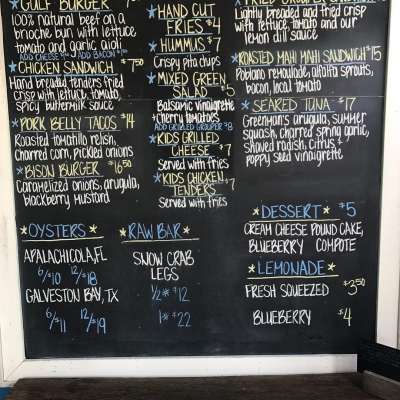 *GULF BURGER
100% natural beef on a
brioche bun with lettuce,
tomato and garlic aioli
ADD CHEESE ADD BACON
*CHICKEN SANDWICH $7.50
Hand breaded tenders fried
crisp with lettuce, tomato,
spicy buttermilk sauce
*PORK BELLY TACOS $14
Roasted tomatillo relish,
charred corn, pickled onions
*BISON BURGER $16.50
Caramelized onions, arugula,
blackberry mustard
*OYSTERS*
APALACHICOLA, FL
6/$10 12/$18
GALVESTON BAY, TX
6/$11 12/$19
*HAND CUT
FRIES $4
*HUMMUS $7
Crispy pita chips
*MIXED GREEN
SALAD $5
Balsamic vinaigrette
+cherry tomatoes
ADD GRILLED GROUPER $8
*KIDS GRILLED
CHEESE $7
Served with fries
*KIDS CHICKEN
TENDERS $7
Served with fries
*RAW BAR*
SNOW CRAB
LEGS
1/2# $12
1# $22
*FRIED GROUPER
Lightly breaded and fried crisp
with lettuce, tomato and our
lemon dill sauce
*ROASTED MAHI MAHI SANDWICH $15
Poblano remoulade, alfalfa sprouts,
bacon, local tomato
*SEARED TUNA $17
Greenman's arugula, summer
squash, charred spring garlic,
shaved radish, citrus +
poppy seed vinaigrette
*DESSERT* $5
CREAM CHEESE POUND CAKE,
BLUEBERRY COMPOTE
*LEMONADE*
FRESH SQUEEZED $3.50
BLUEBERRY $4